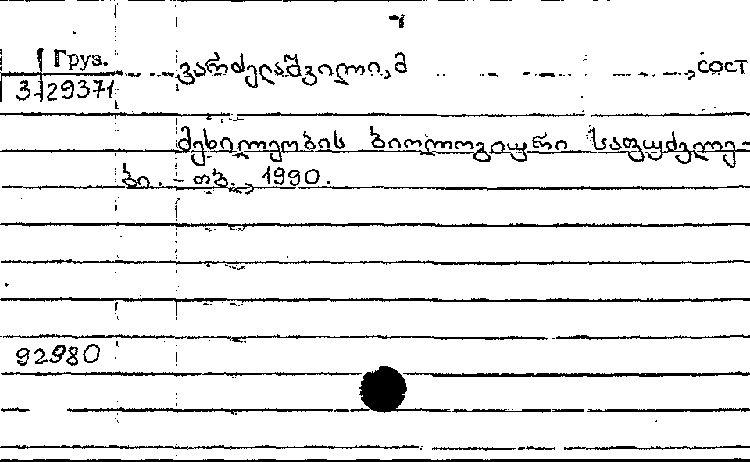 Груз.
ვარძელაშვილი, მ сост
3-29371
მეხილეობის ბიოლოგიური საფუძვლე-
ბი. - თბ., 1990.
92980